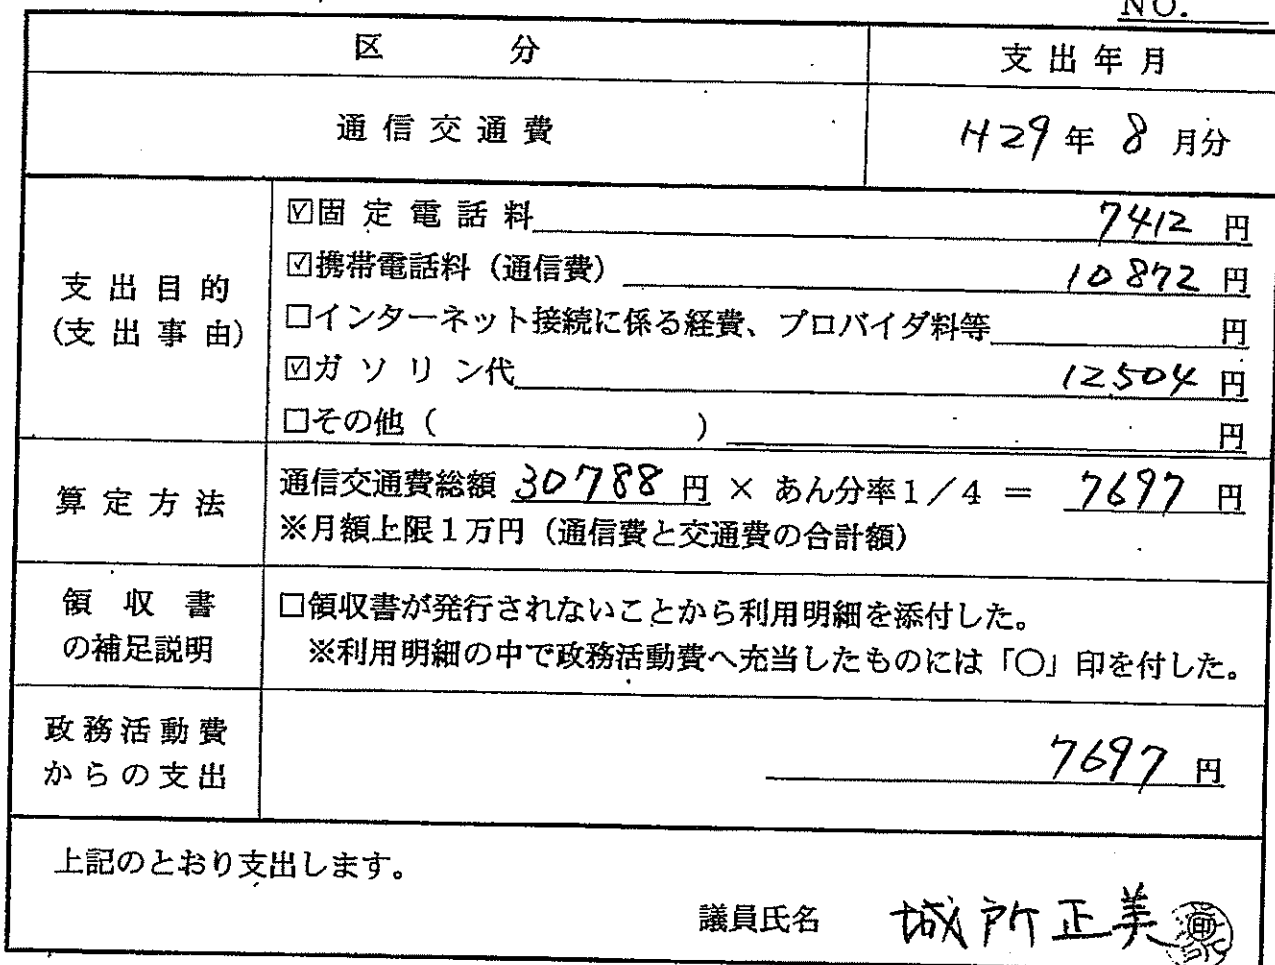 NO.
区 分 支出年月
通信交通費 H29年 8 月分
支出目的
(支出事由)
☑固定電話料 7412 円
☑携帯電話料（通信費） 10872 円
□インターネット接続に係る経費、プロバイダ料等 円
☑ガソリン代 12504 円
□その他（ ） 円
算定方法
通信交通費総額 30788 円 × あん分率1／4 ＝ 7697 円
※月額上限1万円（通信費と交通費の合計額）
領収書
の補足説明
□領収書が発行されないことから利用明細を添付した。
※利用明細の中で政務活動費へ充当したものには「○」印を付した。
政務活動費
からの支出
7697 円
上記のとおり支出します。
議員氏名 城所正美